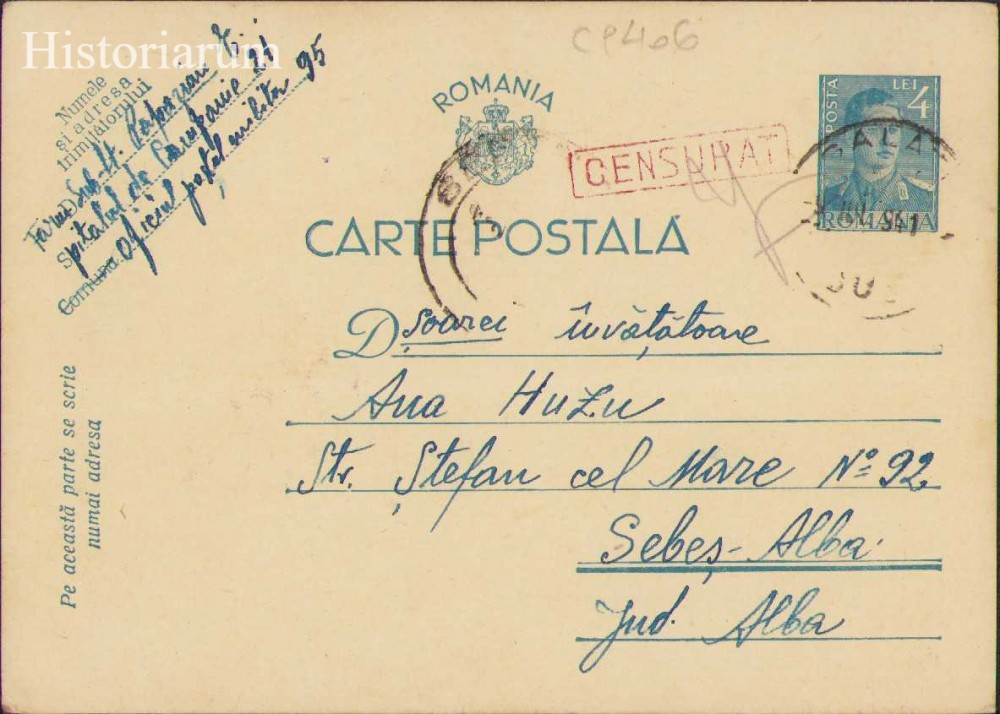 Historiarum
CP406
Numele
și adresa
trimițătorului
Sub. lt.
Spitalul de Campanie 21
Comuna Oficiul poștal militar 95
ROMANIA
CENSURAT
POSTA
LEI 4
ROMANIA
GALAȚ
IUN. 941
CARTE POSTALĂ
Dșoarei învățătoare
Ana Huzu
Str. Ștefan cel Mare No 92
Sebeș-Alba
Jud. Alba
Pe această parte se scrie
numai adresa